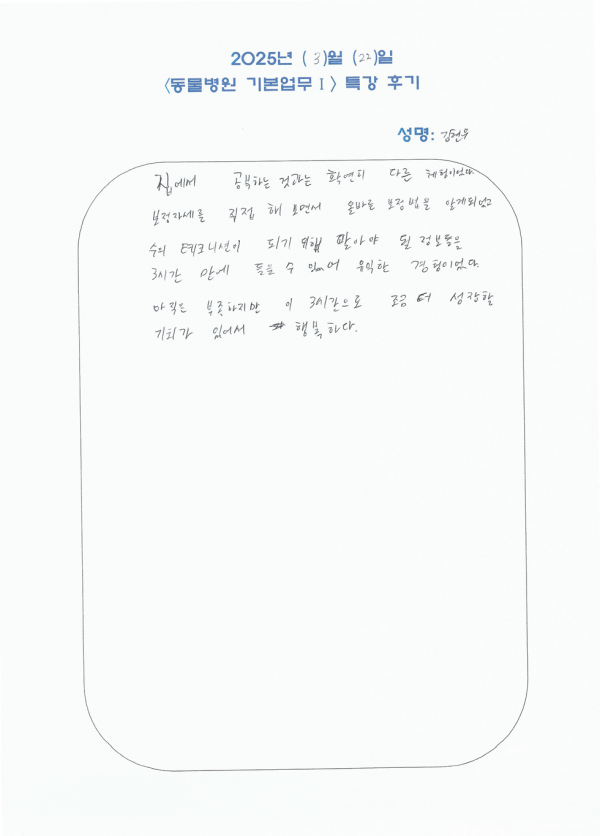 2025년 (3)월 (22)일
〈동물병원 기본업무 I〉 특강 후기
성명: 김현우
집에서 공부하는 것과는 확연히 다른 체험이었다.
보정자세를 직접 해 보면서 올바른 보정법을 알게되었고
수의 테크니션이 되기 위해 알아야 될 정보들은
3시간 만에 들을 수 있어 유익한 경험이었다.
아직은 부족하지만 이 3시간으로 조금 더 성장할
기회가 있어서 행복하다.